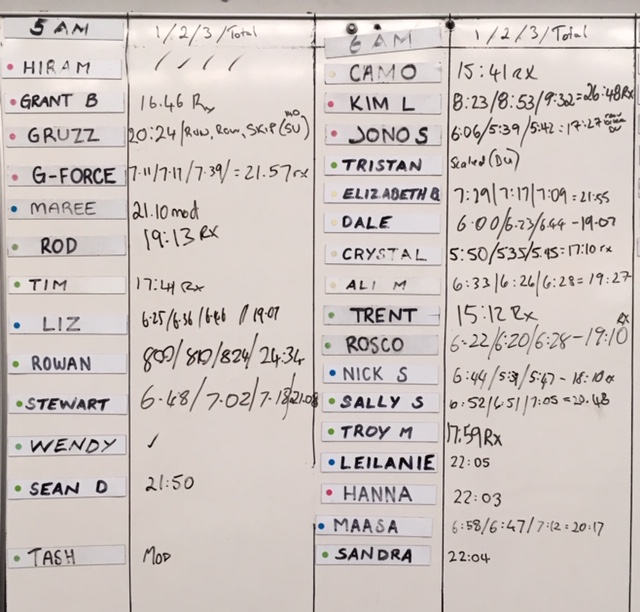 5 AM 1/2/3/Total
HIRAM / / / /
GRANT B 16.46 Rx
GRUZZ 20:24/Row, Row, SKIP (SU) mod
G-FORCE 7.11/7.17/7.39/=21.57rx
MAREE 21.10 mod
ROD 19:13 RX
TIM 17:41 Rx
LIZ 6.25/6.36/6.46 // 19.07
ROWAN 800/810/824/24:34
STEWART 6.48/7.02/7.18/21.08
WENDY ✓
SEAN D 21:50
TASH MOD
6 AM 1/2/3/Total
CAMO 15:41 rx
KIM L 8:23/8:53/9:32=26:48Rx
JONO S 6:06/5:39/5:42=17:27
TRISTAN Scaled (DU)
ELIZABETH B 7:29/7:17/7:09=21:55
DALE 6.00/6.23/6.44 - 19.07
CRYSTAL 5:50/535/5.45=17:10 rx
ALI M 6:33/6:26/6:28=19:27
TRENT 15:12 Rx
ROSCO 6:22/6:20/6:28-19:10 RX
NICK S 6:44/5:39/5:47 - 18:10 rx
SALLY S 6:52/6:51/7:05=20.48
TROY M 17:59 Rx
LEILANIE 22:05
HANNA 22:03
MAASA 6:58/6:47/7:12=20:17
SANDRA 22:04